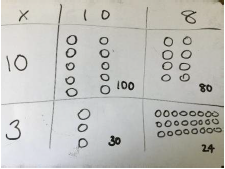 x 10 8
10 100 80
3 30 24